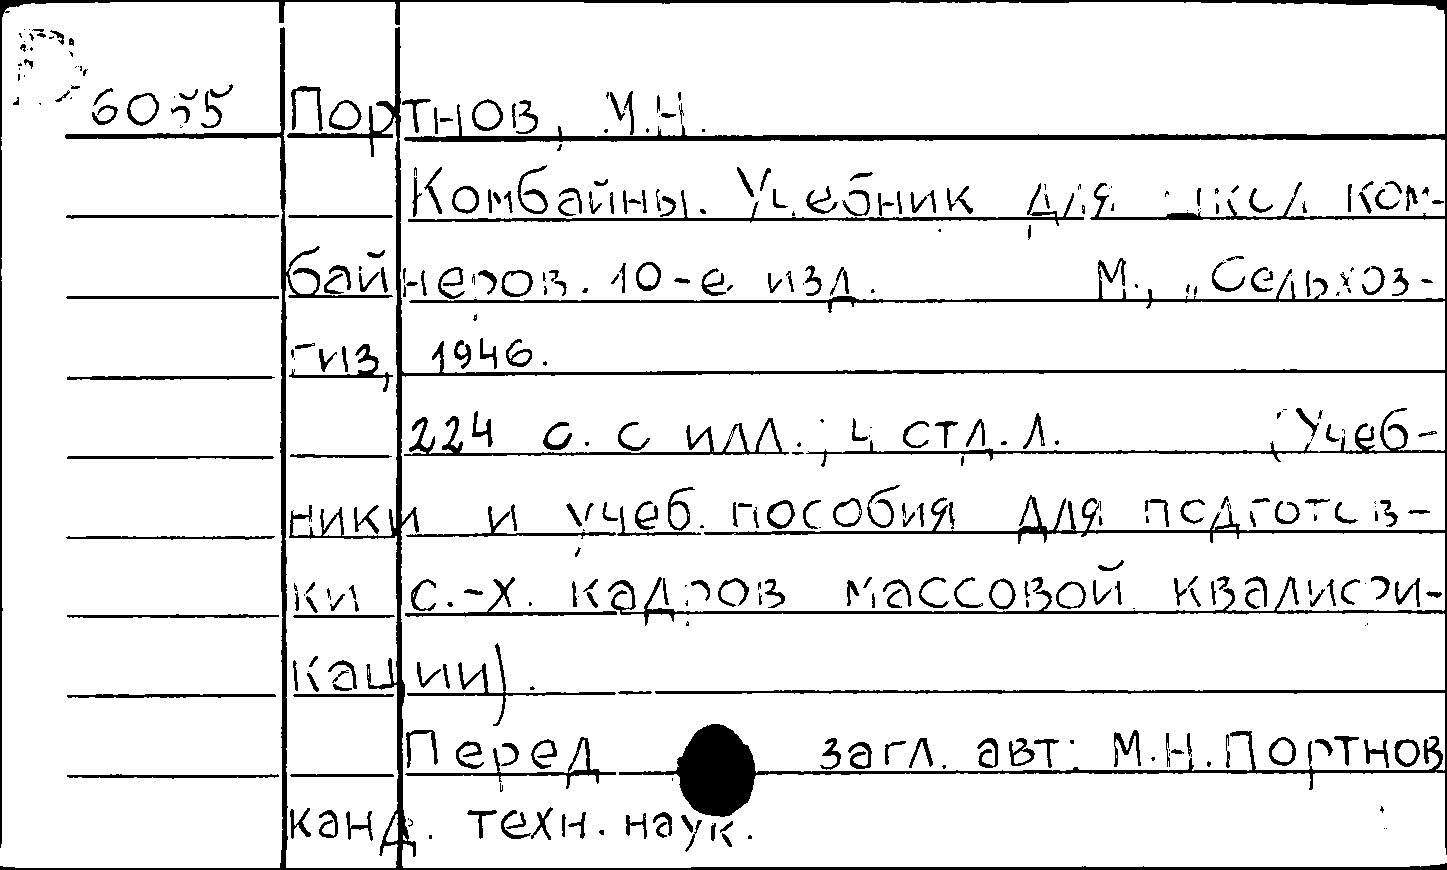 6055 Портнов, М.Н.
Комбайны. Учебник для школ ком-
байнеров. 10-е изд. М., „Сельхоз-
гиз, 1946.
224 с. с илл.; 4 отд. л. (Учеб-
ники и учеб. пособия для подготов-
ки с.-х. кадров массовой квалифи-
кации).
Перед загл. авт: М.Н. Портнов
канд. техн. наук.